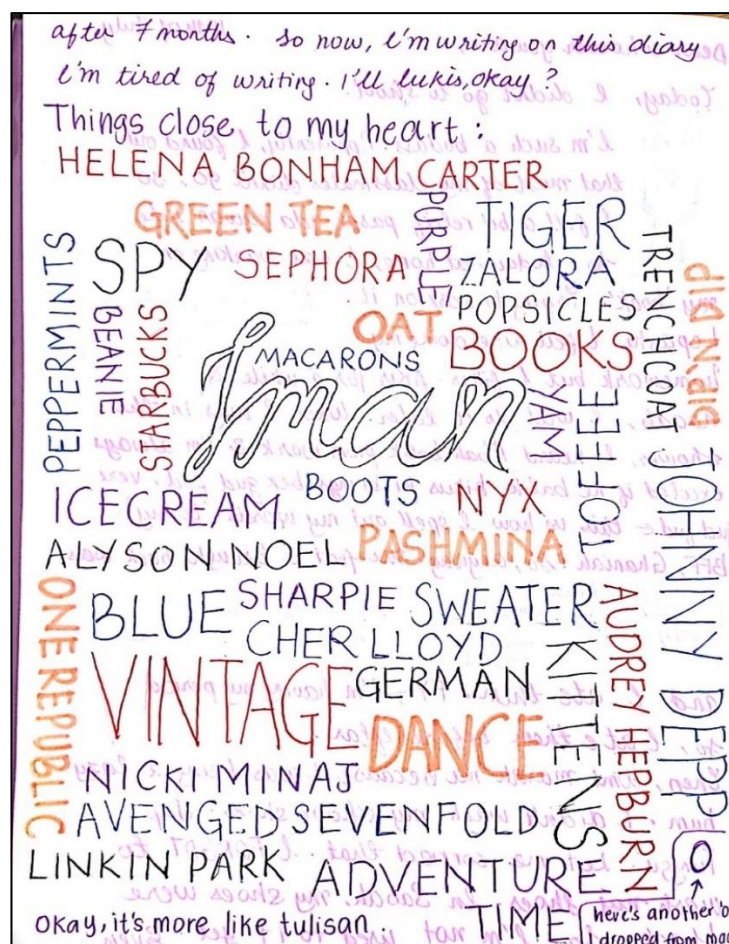 after 7 months. So now, I'm writing on this diary
I'm tired of writing. I'll lukis, okay?
Things close to my heart :
HELENA BONHAM CARTER
GREEN TEA
PURPLE
TIGER
SPY
SEPHORA
ZALORA
POPSICLES
TRENCHCOAT
PEPPERMINTS
BEANIE
STARBUCKS
OAT
BOOKS
MACARONS
Iman
YAM
TOFFEE
JOHNNY DEPP
ICECREAM
BOOTS
NYX
ALYSON NOEL
PASHMINA
ONE REPUBLIC
BLUE
SHARPIE
SWEATER
AUDREY HEPBURN
CHER LLOYD
KITTENS
VINTAGE
GERMAN
DANCE
NICKI MINAJ
AVENGED SEVENFOLD
LINKIN PARK
ADVENTURE
TIME
O
okay, it's more like tulisan.
here's another 'o
dropped from